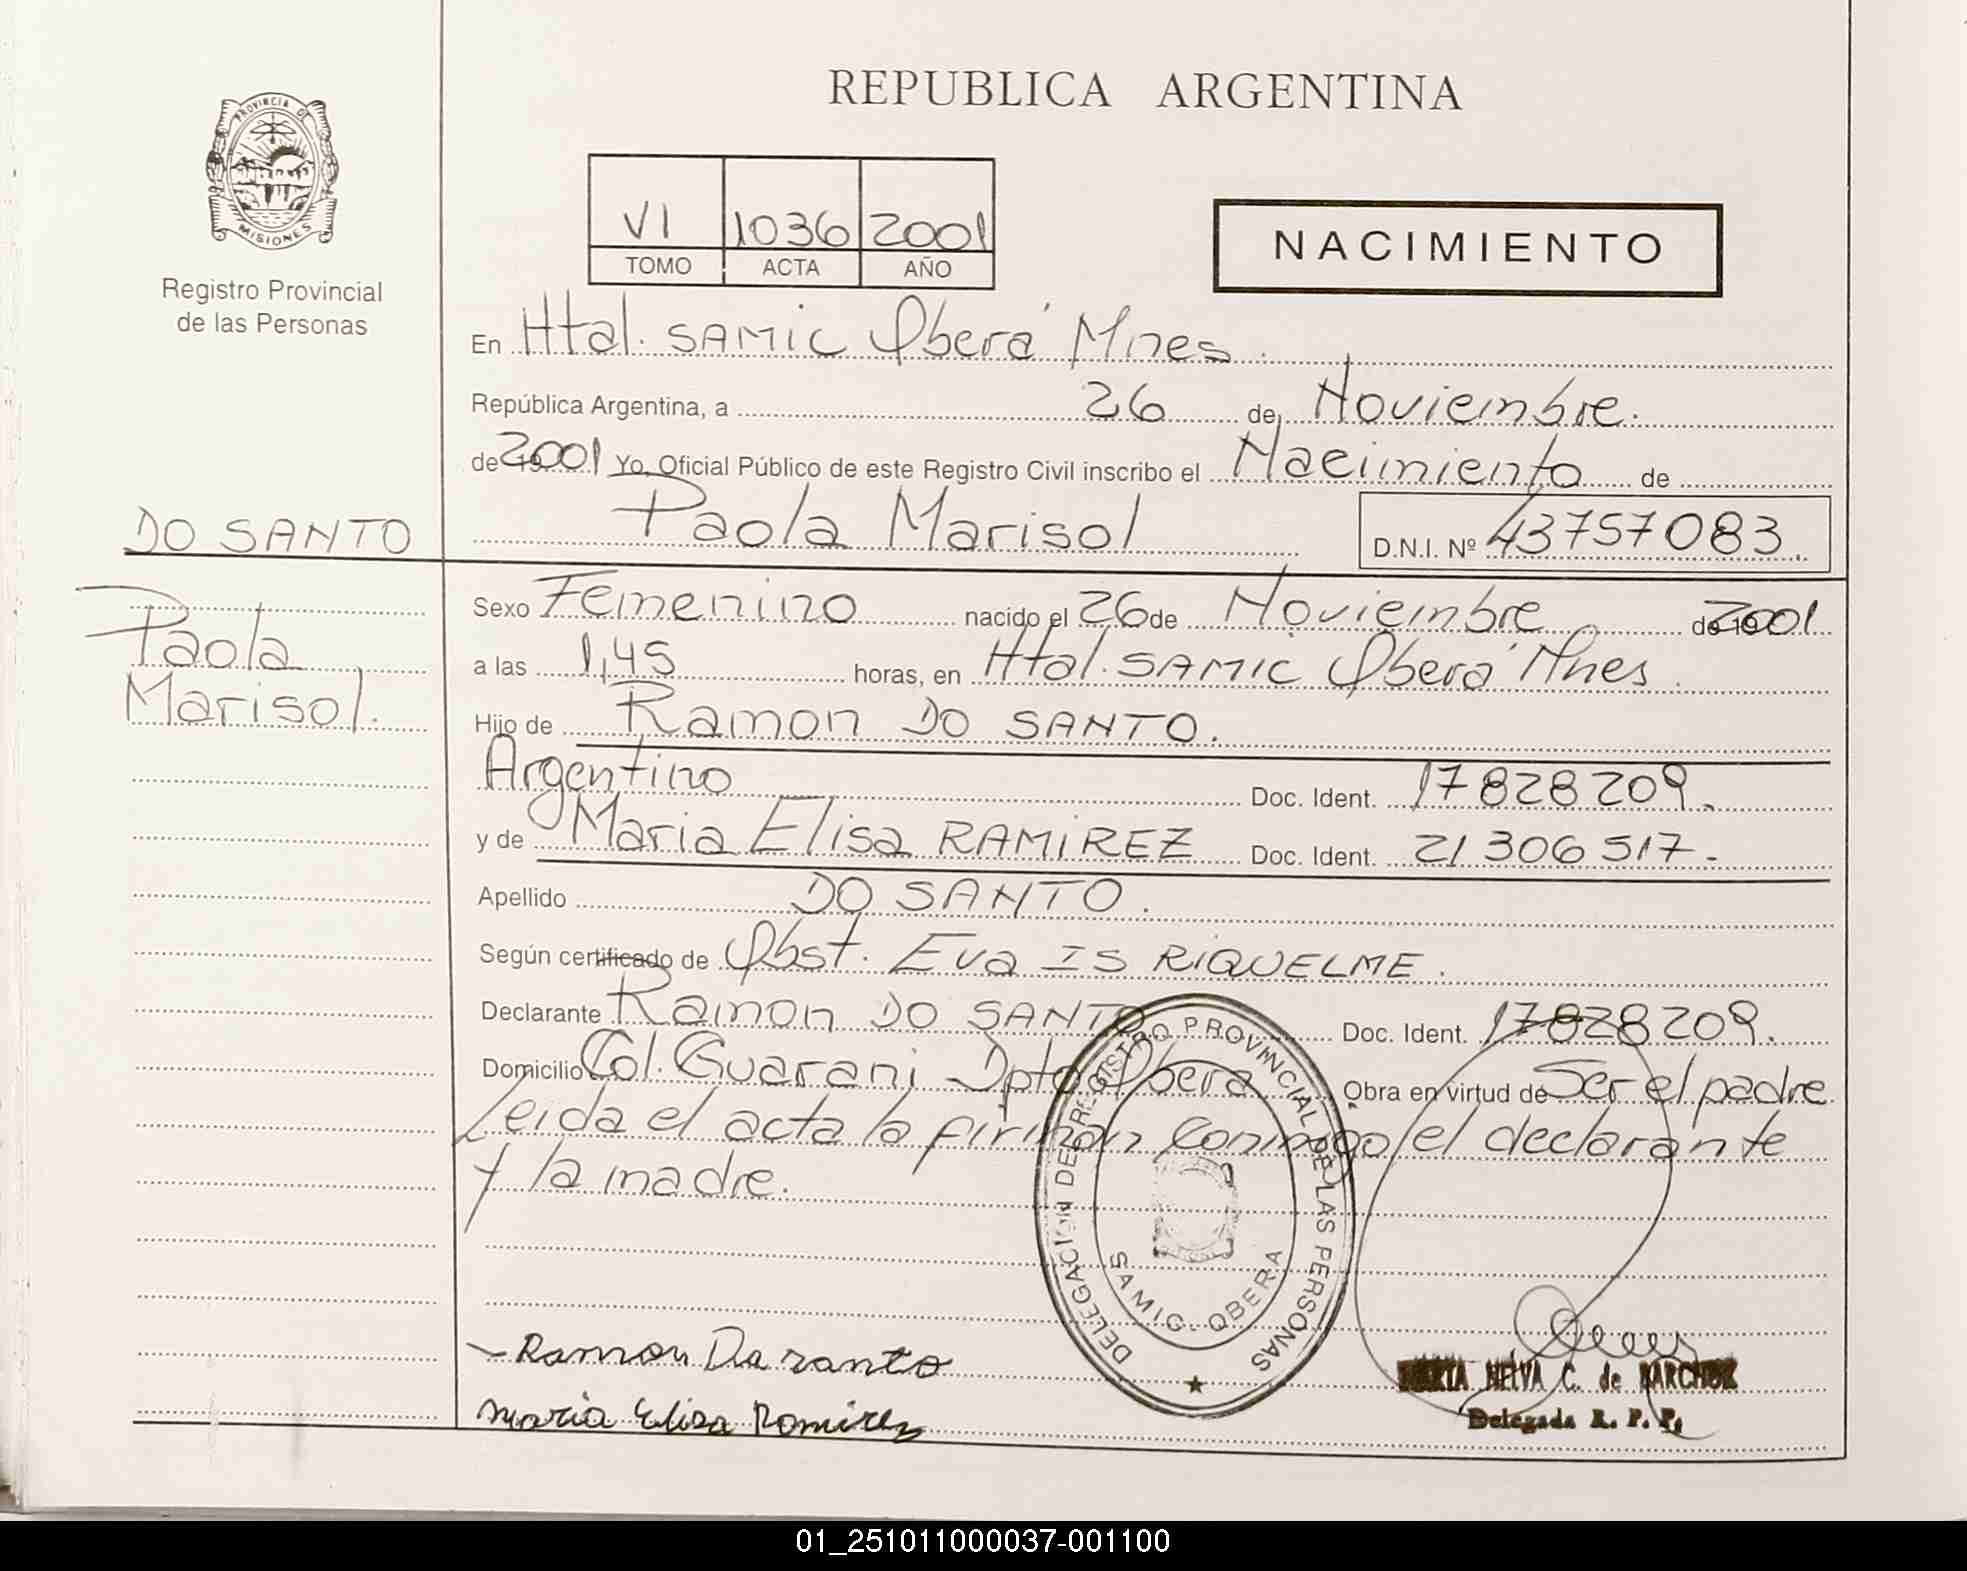 REPUBLICA ARGENTINA
PROVINCIA DE
MISIONES
Registro Provincial
de las Personas
VI 1036 2001
TOMO ACTA AÑO
NACIMIENTO
En Htal. SAMIC Oberá Mnes.
República Argentina, a 26 de Noviembre.
de 2001 Yo, Oficial Público de este Registro Civil inscribo el Nacimiento de
DO SANTO
Paola Marisol
D.N.I. Nº 43757083.
Paola
Marisol.
Sexo Femenino nacido el 26 de Noviembre de 2001
a las 1,45 horas, en Htal. SAMIC Oberá Mnes.
Hijo de Ramon DO SANTO.
Argentino Doc. Ident. 17828209.
y de Maria Elisa RAMIREZ Doc. Ident. 21306517.-
Apellido DO SANTO.
Según certificado de Obst. Eva IS RIQUELME.
Declarante Ramon DO SANTO Doc. Ident. 17828209.
Domicilio Col. Guarani Dpto Obera Obra en virtud de Ser el padre
Leida el acta la firman conmigo el declarante
y la madre.
DELEGACION DEL REGISTRO PROVINCIAL DE LAS PERSONAS
SAMIC - OBERA
Ramon Da ranto
maria Elisa Romirez
NELVA C. de
Delegada R. P. P.
01_251011000037-001100